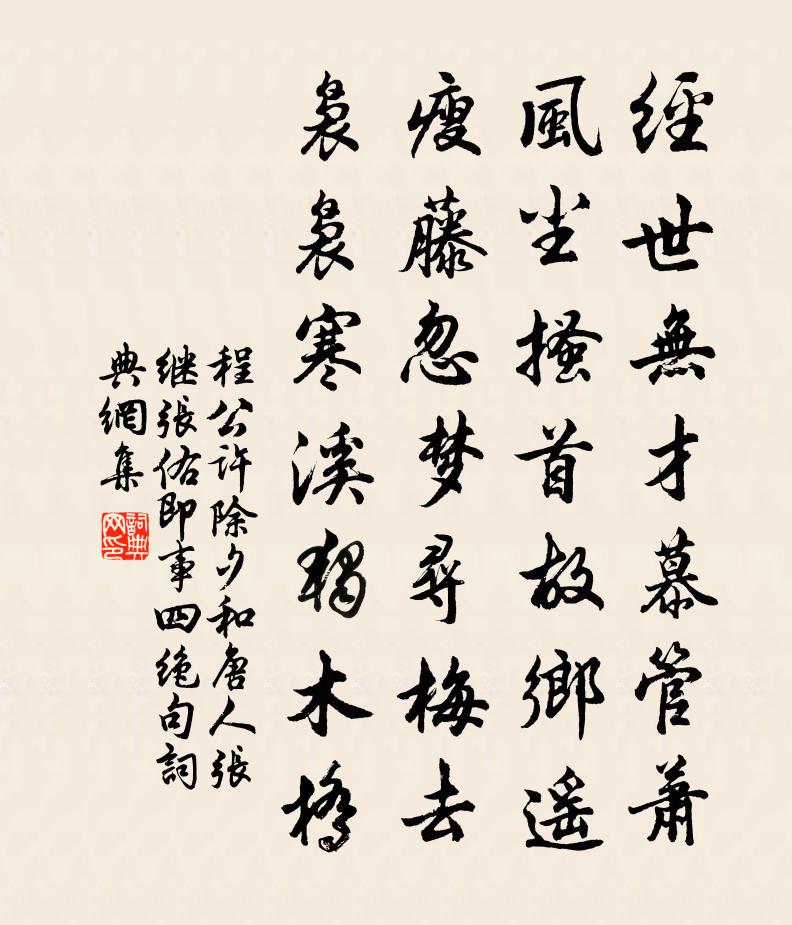 經世無才慕管蕭
風尘搔首故鄉遥
瘦藤忽梦尋梅去
袅袅寒溪獨木橋
程公許除夕和唐人張
继張佑即事四绝句詞
典網集
詞典網印